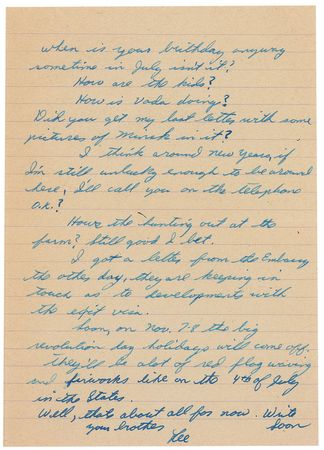 when is your birthday, anyway
sometime in July isn't it?
How are the kids?
How is Vada doing?
Did you get my last letter with some
pictures of Minsk in it?
I think around new years, if
I'm still unlucky enough to be around
here, I'll call you on the telephone
O.K.?
Hows the hunting out at the
farm? Still good I bet.
I got a letter from the Embassy
the other day, they are keeping in
touch as to developments with
the exit visa.
Soon, on Nov. 7 8 the big
revolution day holidays will come off.
they'll be alot of red flag waving
and fireworks like on the 4th of July
in the States.
Well, thats about all for now. Write
soon
your brother
Lee